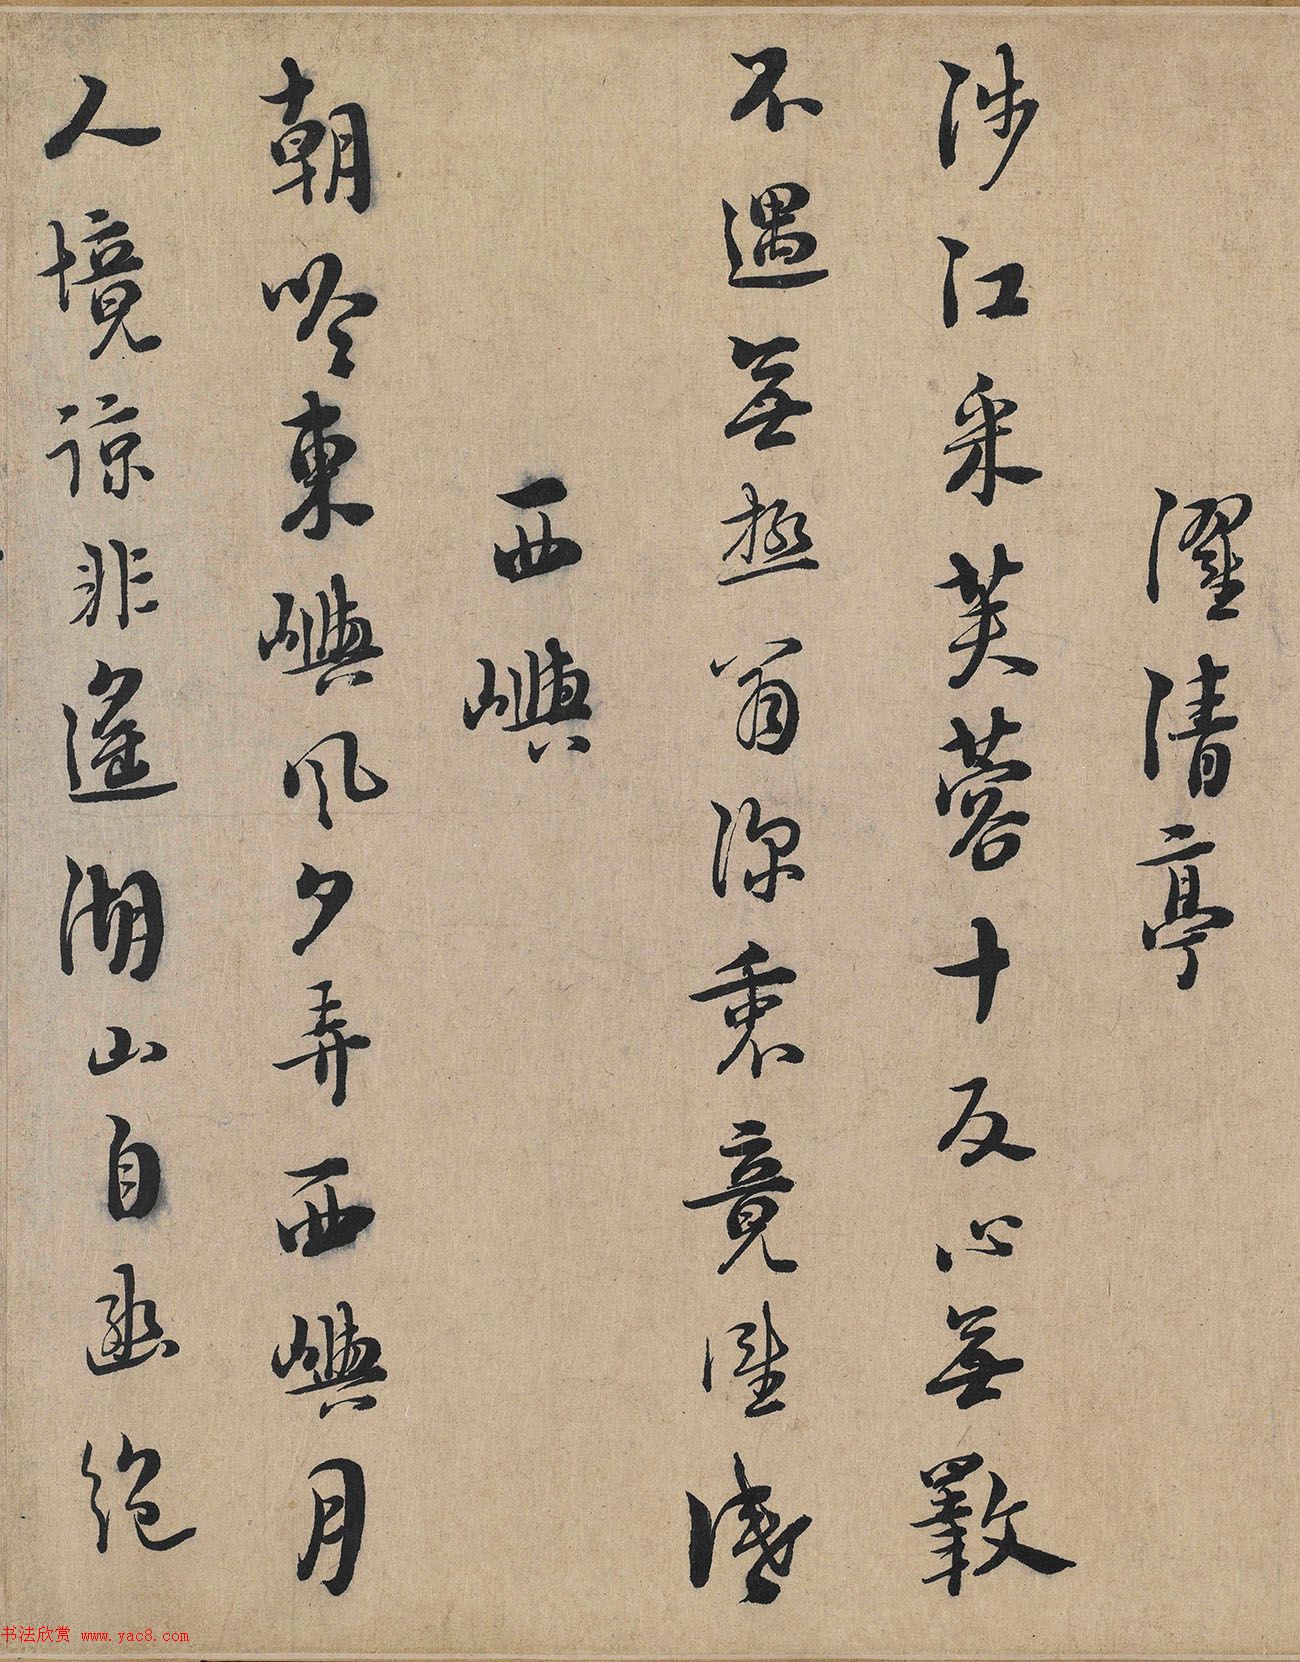 濯清亭
涉江采芙蓉十反心無斁
不遇無極翁深衷竟誰識
西嶼
朝吟東嶼風夕弄西嶼月
人境諒非遙湖山自幽絕
书法欣赏 www.yac8.com